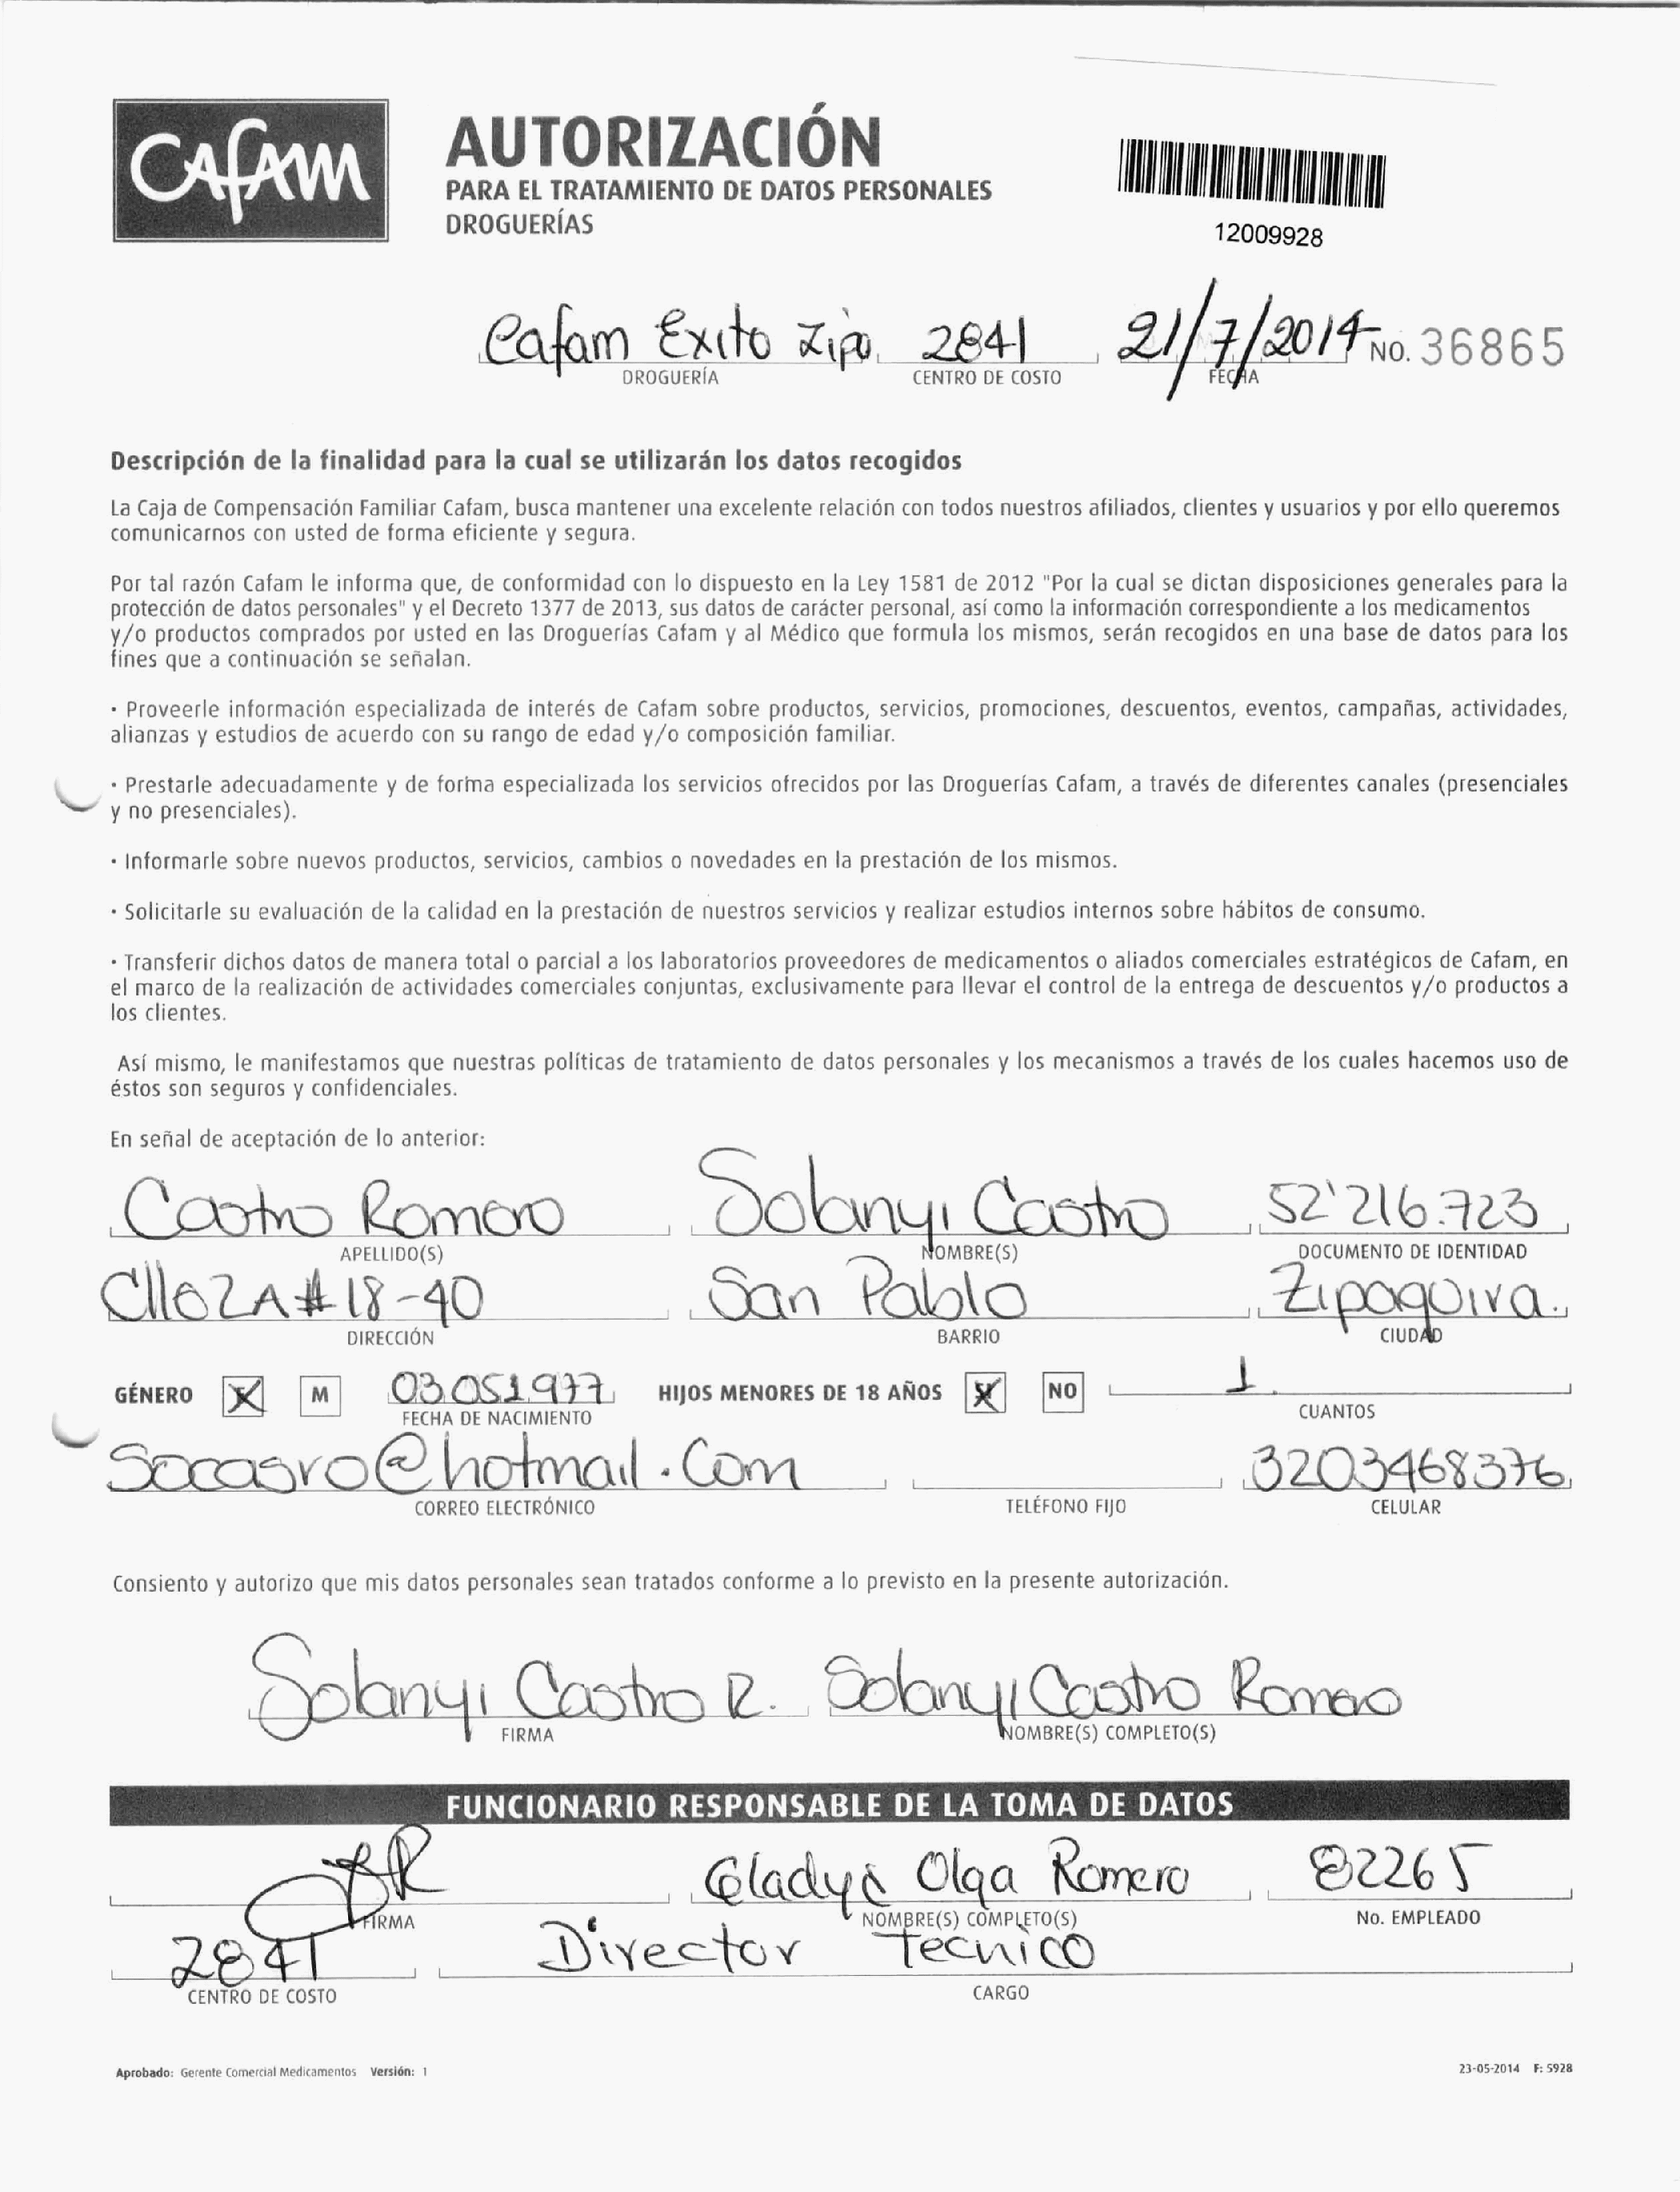 Cafam
AUTORIZACIÓN
PARA EL TRATAMIENTO DE DATOS PERSONALES
DROGUERÍAS
12009928
Cafam Exito Zipa 2841 21/7/2014 NO. 36865
DROGUERÍA CENTRO DE COSTO FECHA
Descripción de la finalidad para la cual se utilizarán los datos recogidos
La Caja de Compensación Familiar Cafam, busca mantener una excelente relación con todos nuestros afiliados, clientes y usuarios y por ello queremos
comunicarnos con usted de forma eficiente y segura.
Por tal razón Cafam le informa que, de conformidad con lo dispuesto en la Ley 1581 de 2012 "Por la cual se dictan disposiciones generales para la
protección de datos personales" y el Decreto 1377 de 2013, sus datos de carácter personal, así como la información correspondiente a los medicamentos
y/o productos comprados por usted en las Droguerías Cafam y al Médico que formula los mismos, serán recogidos en una base de datos para los
fines que a continuación se señalan.
· Proveerle información especializada de interés de Cafam sobre productos, servicios, promociones, descuentos, eventos, campañas, actividades,
alianzas y estudios de acuerdo con su rango de edad y/o composición familiar.
· Prestarle adecuadamente y de forma especializada los servicios ofrecidos por las Droguerías Cafam, a través de diferentes canales (presenciales
y no presenciales).
· Informarle sobre nuevos productos, servicios, cambios o novedades en la prestación de los mismos.
· Solicitarle su evaluación de la calidad en la prestación de nuestros servicios y realizar estudios internos sobre hábitos de consumo.
· Transferir dichos datos de manera total o parcial a los laboratorios proveedores de medicamentos o aliados comerciales estratégicos de Cafam, en
el marco de la realización de actividades comerciales conjuntas, exclusivamente para llevar el control de la entrega de descuentos y/o productos a
los clientes.
Así mismo, le manifestamos que nuestras políticas de tratamiento de datos personales y los mecanismos a través de los cuales hacemos uso de
éstos son seguros y confidenciales.
En señal de aceptación de lo anterior:
Castro Romero Solanyi Castro 52'216.723
APELLIDO(S) NOMBRE(S) DOCUMENTO DE IDENTIDAD
Cll62A#18-40 San Pablo Zipaquira.
DIRECCIÓN BARRIO CIUDAD
GÉNERO X M 03051977 HIJOS MENORES DE 18 AÑOS X NO 1
FECHA DE NACIMIENTO CUANTOS
Socasro@hotmail.Com 3203468376
CORREO ELECTRÓNICO TELÉFONO FIJO CELULAR
Consiento y autorizo que mis datos personales sean tratados conforme a lo previsto en la presente autorización.
Solanyi Castro R. Solanyi Castro Romero
FIRMA NOMBRE(S) COMPLETO(S)
FUNCIONARIO RESPONSABLE DE LA TOMA DE DATOS
Gladys Olga Romero 82265
FIRMA NOMBRE(S) COMPLETO(S) No. EMPLEADO
2841 Director Tecnico
CENTRO DE COSTO CARGO
Aprobado: Gerente Comercial Medicamentos Versión: 1 23-05-2014 F: 5928